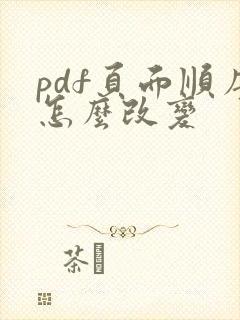 pdf頁面順序
怎麼改變
茶